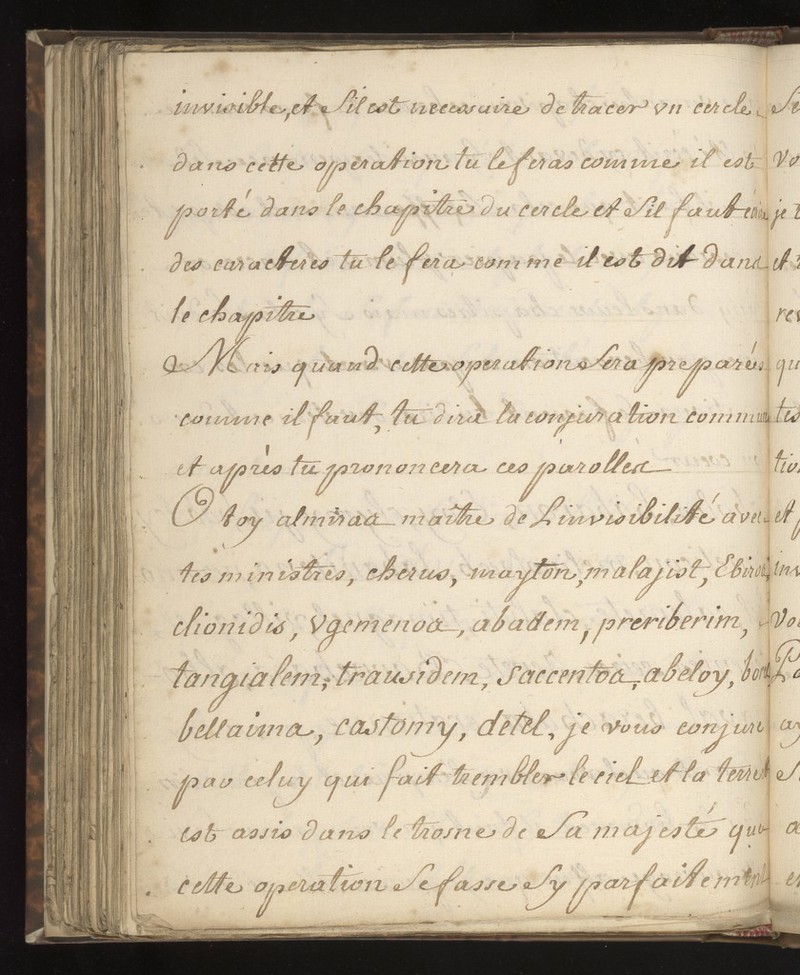 invisible, et Sil est necessaire de tracer vn cercle
dans cette operation tu le feras comme il est
porté dans le chapitre du cercle et Sil faut
des caracteres tu le fera comme il est dit dans
le chapitre
Mais quand cette operation Sera preparés
comme il faut, tu dira la conjuration commune
et aprés tu prononcera ces parolles
O toy almiras maitre de Linvisibilité avec
tes ministres, cherus, mayton, malajist,
clionidis, vgemenoa, abadem, preriberim,
tangialem, trausidem, Saccentoa, abeloy,
bellaima, castomy, detel, je vous conjure
par celuy qui fait trembler le ciel et la terre
est assis dans le trosne de Sa majesté que
cette operation Se fasse Sy parfaitement